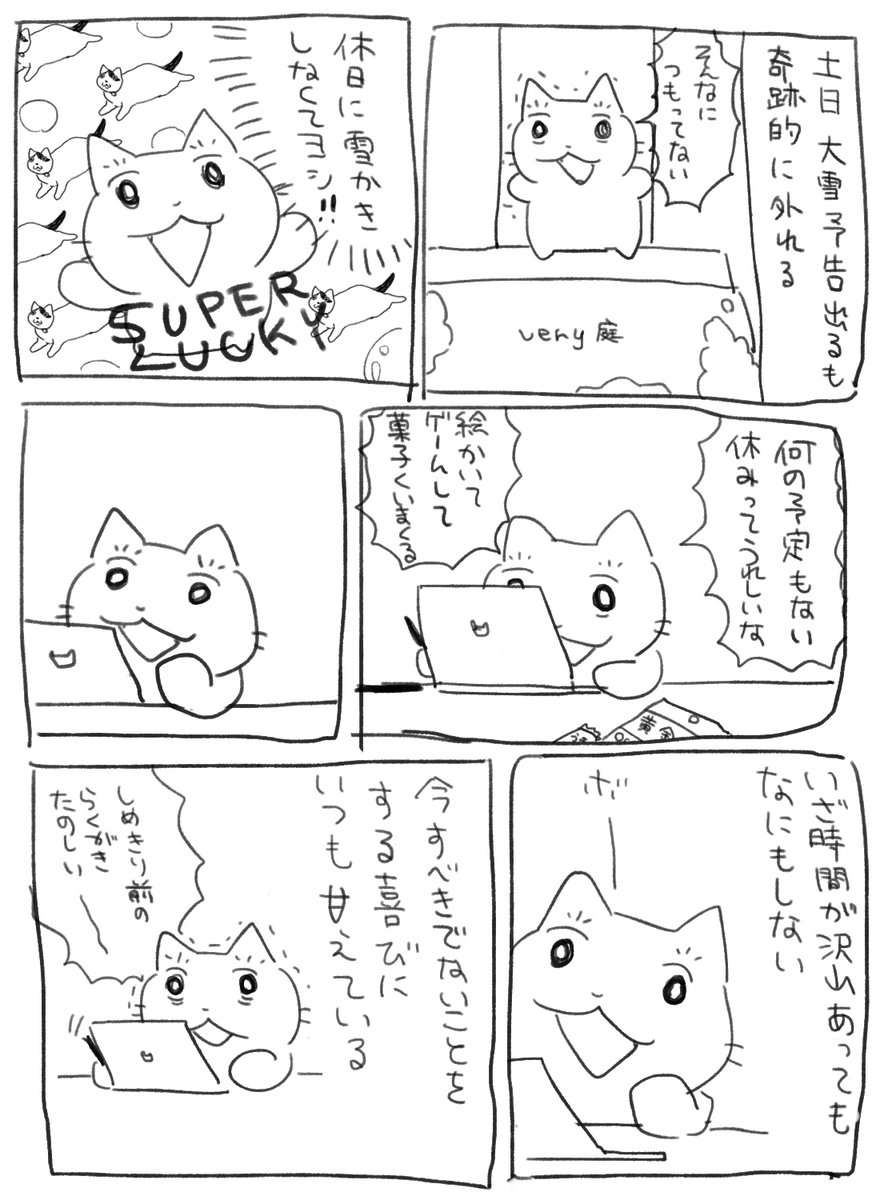 土日 大雪予告出るも
奇跡的に外れる
そんなに
つもってない
very 庭
休日に雪かき
しなくてヨシ!!
SUPER
LUCKY
何の予定もない
休みってうれしいな
絵かいて
ゲームして
菓子くいまくる
黄金
いざ時間が沢山あっても
なにもしない
ボー
今すべきでないことを
する喜びに
いつも甘えている
しめきり前の
らくがき
たのしい